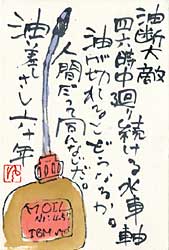 油断大敵
四六時中回り続ける水車軸
油が切れるとどうなるか。
人間だって同んなじだ。
油差しさし六十年
MOIL